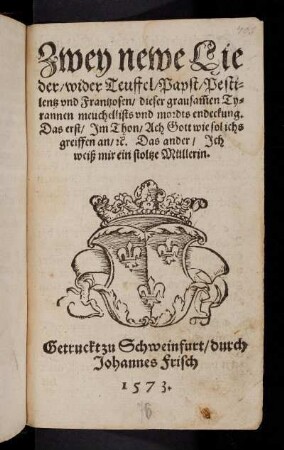 Zwey newe Lie
der/wider Teuffel/Papst/Pesti-
lentz vnd Frantzosen/dieser grausamen Ty-
rannen meuchellists vnd mordts endeckung.
Das erst/ Im Thon/ Ach Gott wie sol ichs
greiffen an/ꝛc. Das ander/ Ich
weiß mir ein stoltze Müllerin.
Getruckt zu Schweinfurt/durch
Johannes Frisch
1573.